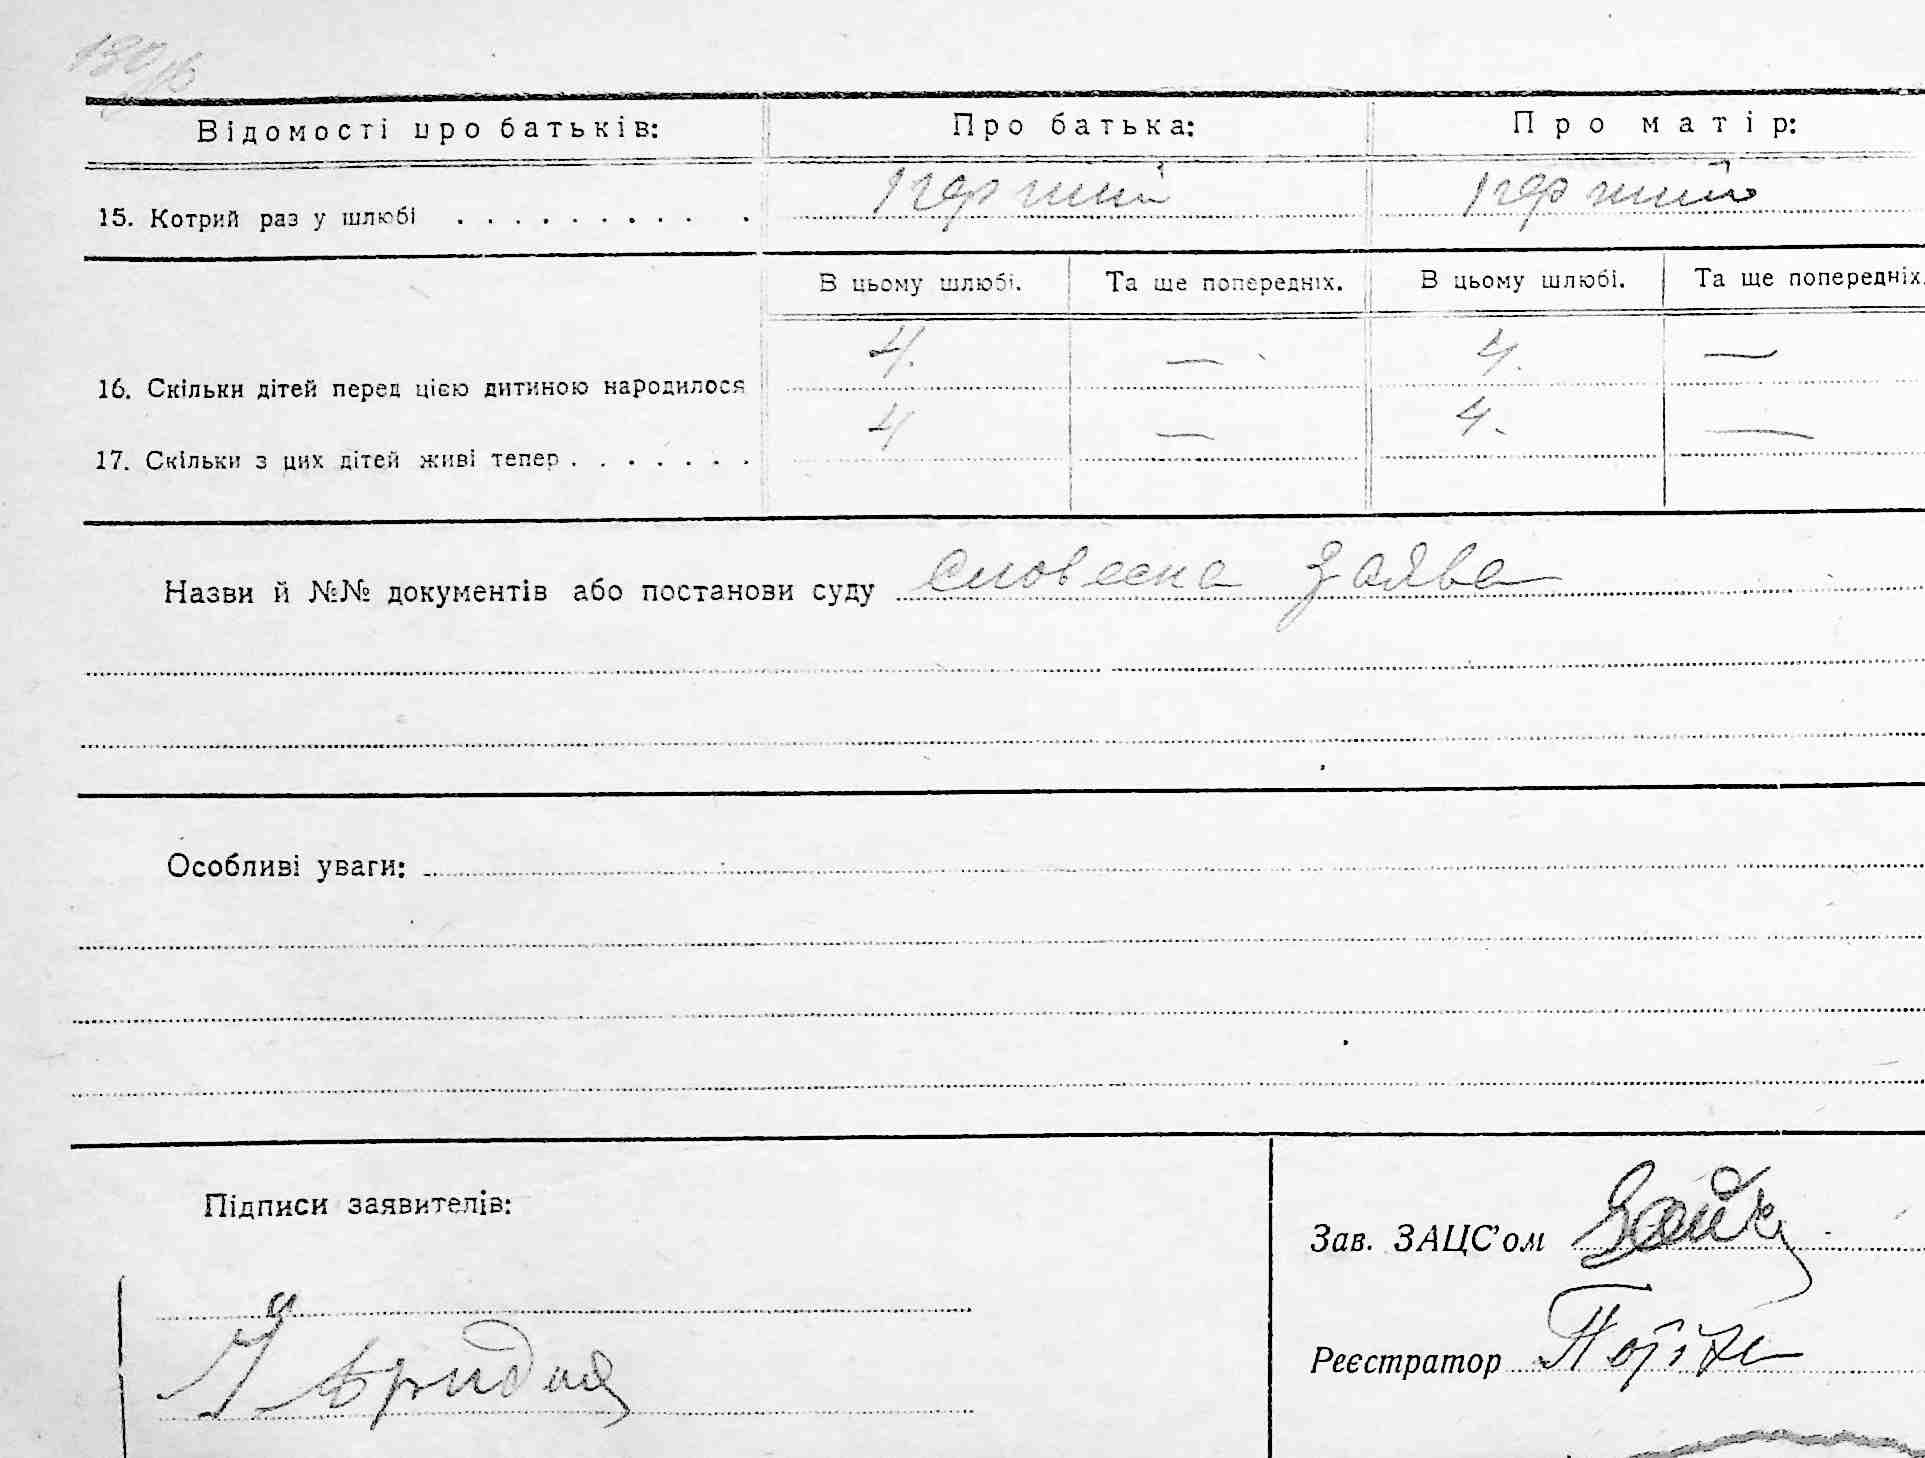 Відомості про батьків: Про батька: Про матір:
15. Котрий раз у шлюбі . . . . . . . . . . перший перший
В цьому шлюбі. Та ще попередніх. В цьому шлюбі. Та ще попередніх.
16. Скільки дітей перед цією дитиною народилося 4. — 4. —
17. Скільки з цих дітей живі тепер . . . . . . . 4 — 4. —
Назви й №№ документів або постанови суду словесна заява
Особливі уваги:
Підписи заявителів:
Зав. ЗАЦС'ом
Реєстратор